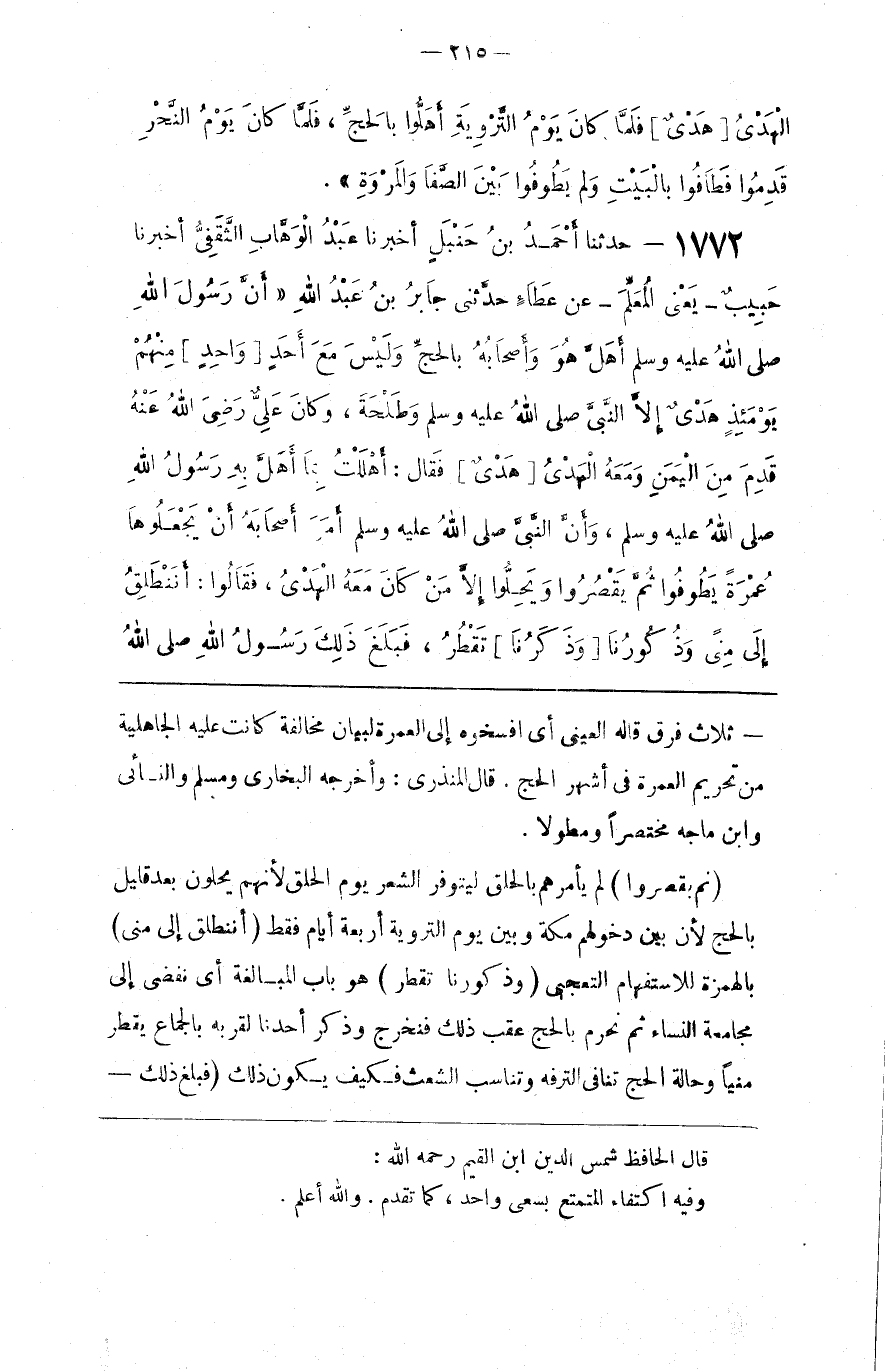 — ٢١٥ —
الْهَدْىُ [ هَدْىٌ ] فَلَمَّا كانَ يَوْمُ التَّرْوِيَةِ أَهَلُّوا بالَحجِّ ، فَلَمَّا كانَ يَوْمُ النَّحْرِ
قَدِمُوا فَطَافُوا بالْبَيْتِ وَلم يَطُوفُوا بَيْنَ الصَّفَا وَالَمرْوَةِ » .
١٧٧٢ — حدثنا أَحْمَـدُ بنُ حَنْبَلٍ أخبرنا عَبْدُ الْوَهَّابِ الثَّقَفِىُّ أخبرنا
حَبِيبٌ ـ يَعْنِى الُمعَلِّمَ ـ عن عَطَاءٍ حدَّثنى جابرُ بنُ عَبْدُ اللهِ « أَنَّ رَسُولَ اللهِ
صلى اللهُ عليه وسلم أَهَلَّ هُوَ وَأَصحَابُهُ بالحجِّ وَلَيْسَ مَعَ أَحَدٍ [ وَاحِدٍ ] مِنْهُمْ
يَوْمَئِذٍ هَدْىٌ إِلاَّ النَّبىَّ صلى اللهُ عليه وسلم وَطَلْحَةَ ، وَكانَ عَلِىٌّ رَضِىَ اللهُ عَنْهُ
قَدِمَ مِنَ الْيَمَنِ وَمَعَهُ الْهَدْىُ [ هَدْىٌ ] فَقال : أَهْلَلْتُ بِمَا أَهَلَّ بِهِ رَسُولُ اللهِ
صلى اللهُ عليه وسلم ، وَأَنَّ النَّبىَّ صلى اللهُ عليه وسلم أَمَرَ أَصحَابَهُ أَنْ يَجْعَـلُوهاَ
عُمْرَةً يَطُوفُوا ثُمَّ يَقْصُرُوا وَيَحِـلُّوا إِلاَّ مَنْ كَانَ مَعَهُ الْهَدْىُ ، فَقَالُوا : أَنَنْطَلِقُ
إِلَى مِنًى وَذُ كُورُنَا [ وَذَ كَرُنَا ] تَقْطُرُ ، فَبَلَغَ ذَلِكَ رَسُـولُ اللهِ صلى اللهُ
— ثلاث فرق قاله العينى أى افسخوه إلى العمرة لبيان مخالفة كانت عليه الجاهلية
من تحريم العمرة فى أشهر الحج . قال المنذرى : وأخرجه البخارى ومسلم والنسائى
وابن ماجه مختصراً ومطولا .
(ثم يقصروا ) لم يأمرهم بالحلق ليتوفر الشعر يوم الحلق لأنهم يحلون بعد قليل
بالحج لأن بين دخولهم مكة وبين يوم التروية أربعة أيام فقط ( أننطلق إلى منى)
بالهمزة للاستفهام التعجبى ( وذكورنا تقطر ) هو باب المبـالغة أى نفضى إلى
مجامعة النساء ثم نحرم بالحج عقب ذلك فنخرج وذكر أحدنا لقربه بالجماع يقطر
منياً وحالة الحج تنافى الترفه وتناسب الشعث فـكيف يـكون ذلك (فبلغ ذلك —
قال الحافظ شمس الدين ابن القيم رحمه الله :
وفيه اكتفاء المتمتع بسعى واحد ، كما تقدم . والله أعلم .